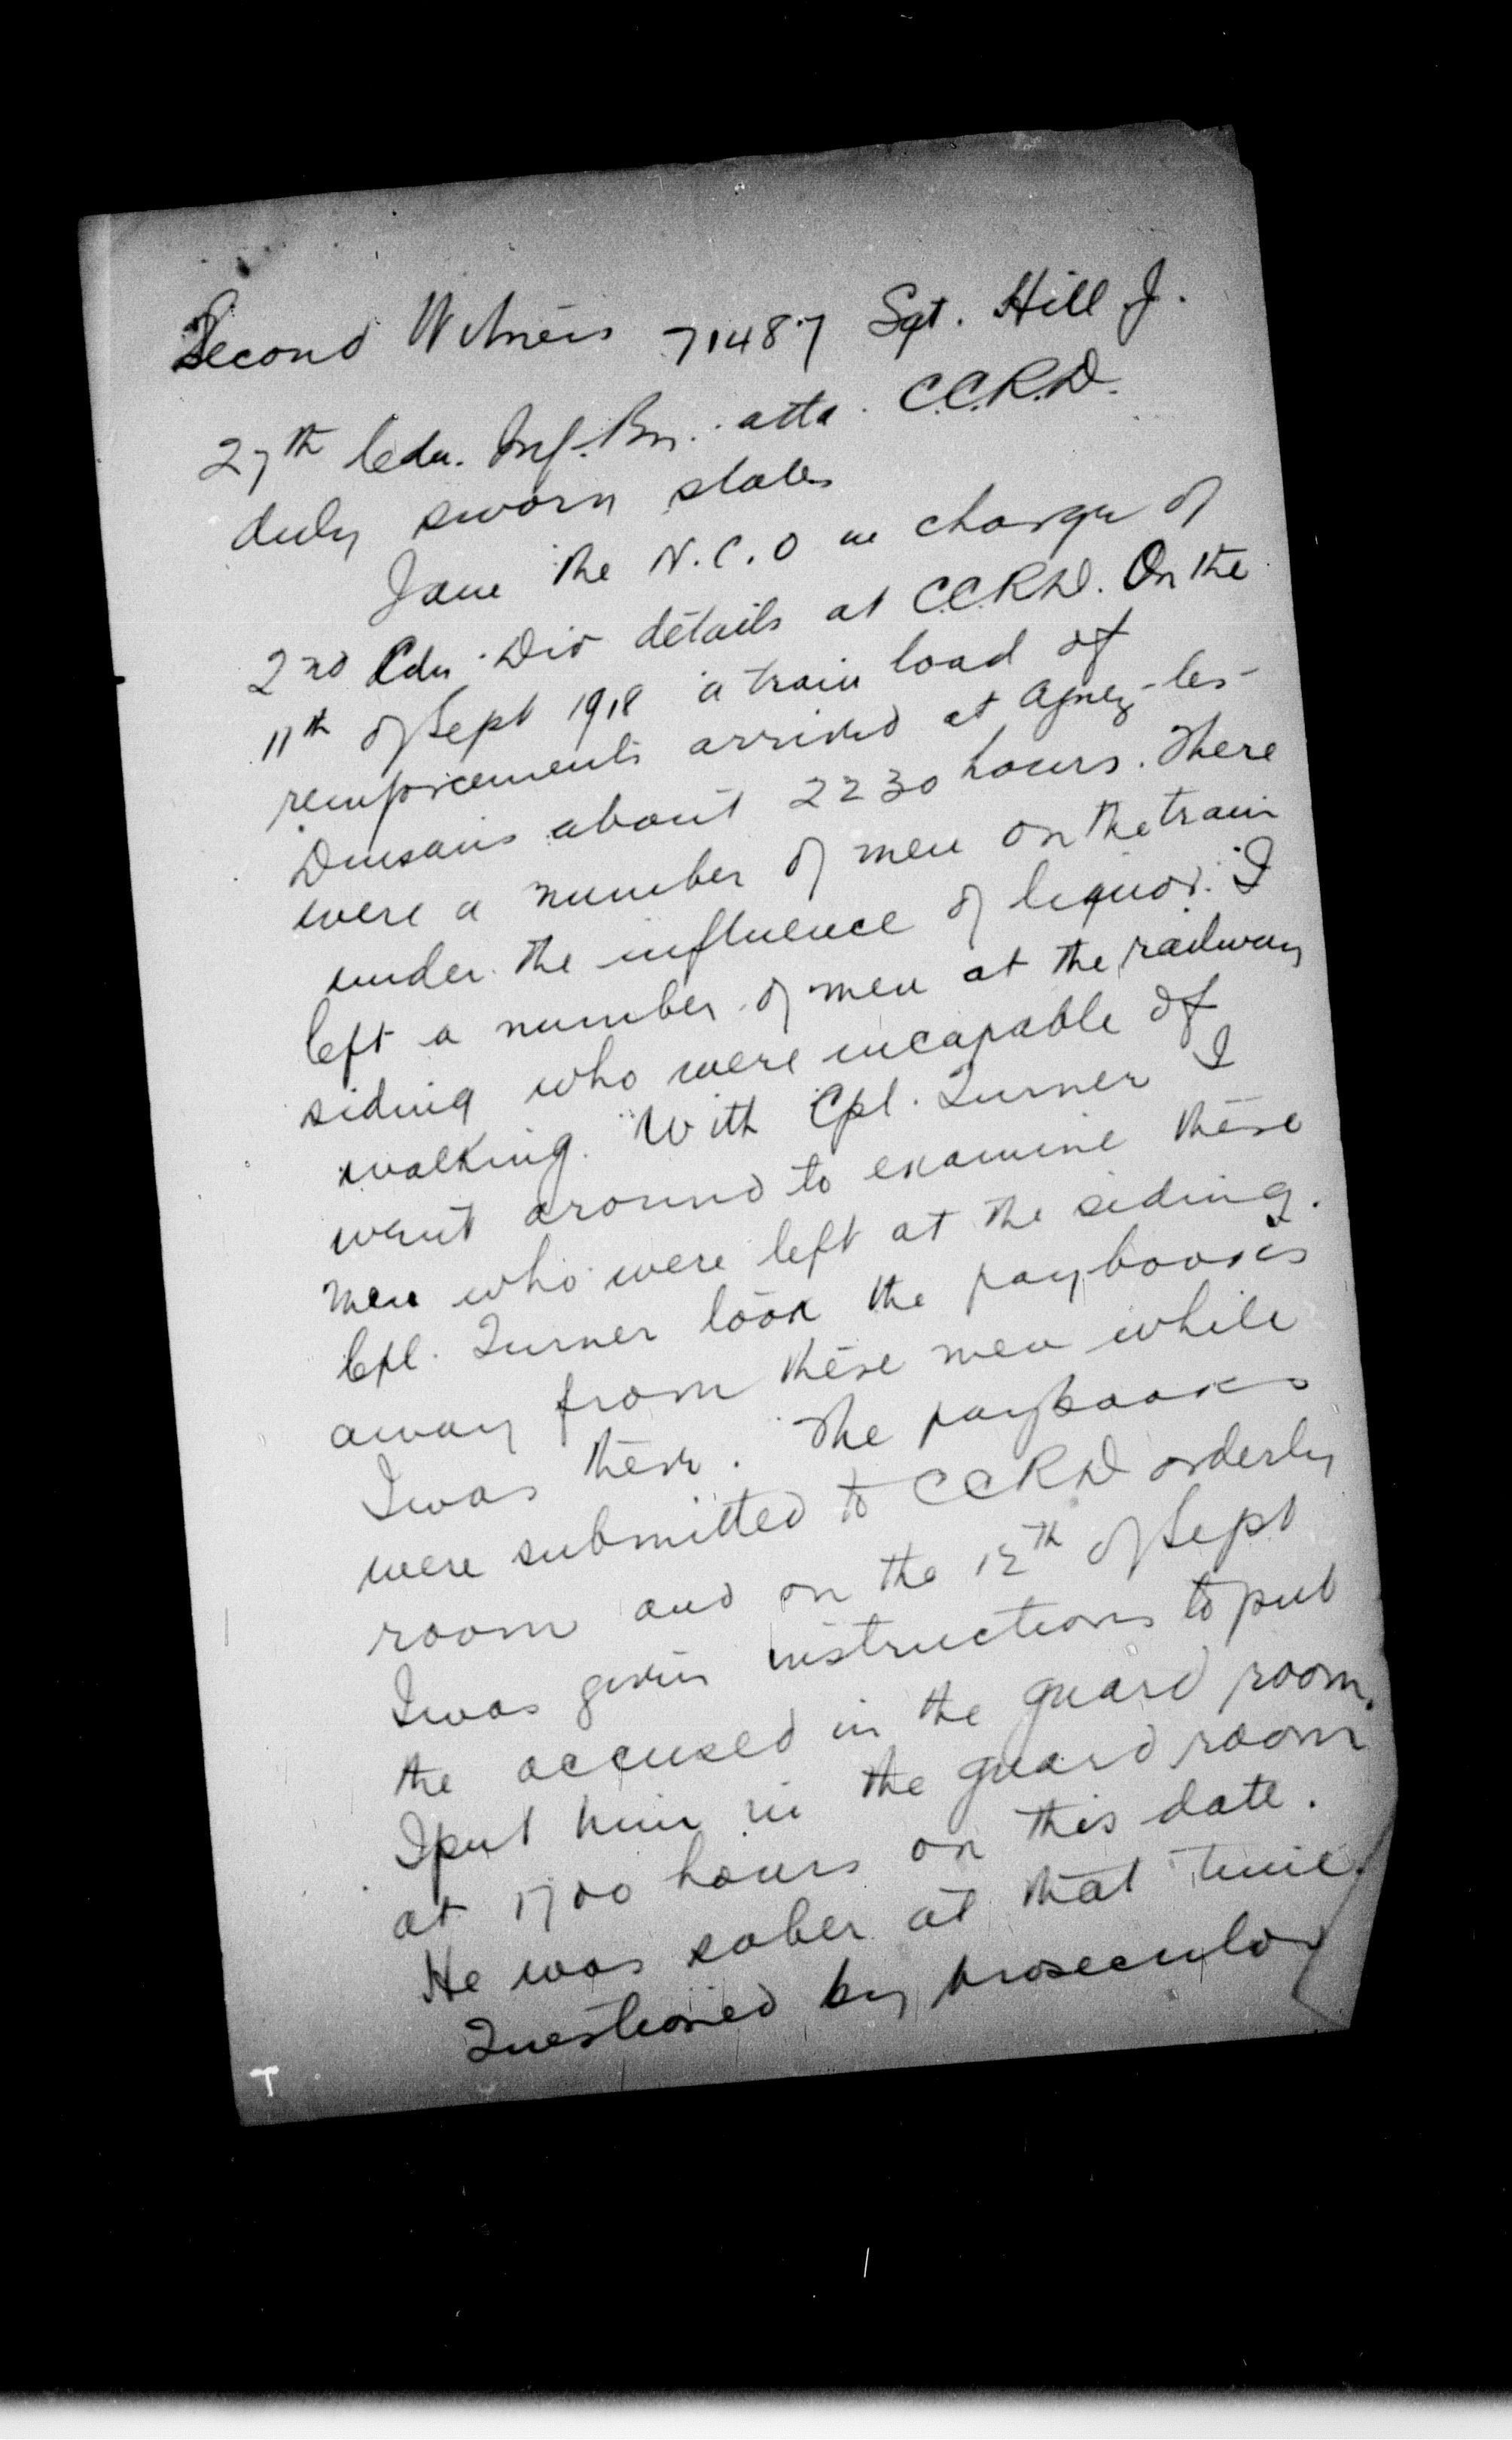 Second Witness 71487 Sgt. Hill J.
27th Cdn. Inf. Bn. atta. C.C.R.D.
duly sworn states
I am the N.C.O in charge of
2nd Cdn Div details at C.C.R.D. On the
11th of Sept 1918 a train load of
reinforcements arrived at Agnez-les-
Duisans about 2230 hours. There
were a number of men on the train
under the influence of liquor. I
left a number of men at the railway
siding who were incapable of
walking. With Cpl. Turner I
went around to examine these
men who were left at the siding.
Cpl. Turner took the paybooks
away from these men while
I was there. The paybooks
were submitted to CCRD orderly
room and on the 12th of Sept
I was given instructions to put
the accused in the guard room.
I put him in the guard room
at 1700 hours on this date.
He was sober at that time.
Questioned by prosecutor
T